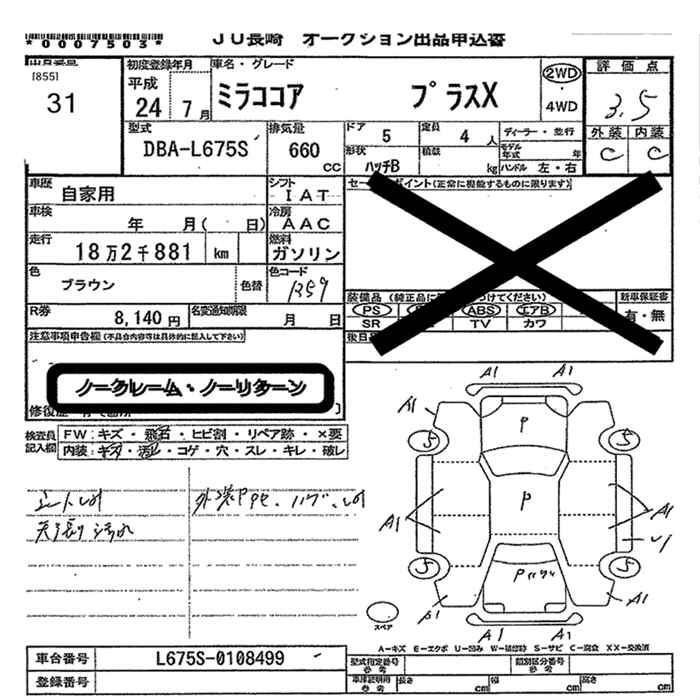 *0007503*
JU長崎 オークション出品申込書
[855]
31
初度登録年月
平成
24年 7月
車名・グレード
ミラココア プラスX
2WD
・4WD
評価点
3.5
外装 内装
C C
型式
DBA-L675S
排気量
660 CC
ドア 5
定員 4 人
形状 ハッチB
積載 kg
ディーラー・並行
モデル年式 年
ハンドル 左・右
車歴 自家用
シフト IAT
車検 年 月( 日)
冷房 AAC
走行 18万2千881 km
燃料 ガソリン
色 ブラウン 色替
色コード R59
R券 8,140円
名変通知期限 月 日
セ ポイント(正常に機能するものに限ります)
装備品(純正品に つけてください)
PS ABS エアB
SR TV カワ
新車保証書
有・無
後日
注意事項申告欄(不具合内容等は具体的に記入して下さい)
ノークレーム・ノーリターン
検査員記入欄
FW:キズ・飛石・ヒビ割・リペア跡・×要
内装:キズ・汚れ・コゲ・穴・スレ・キレ・破レ
シートしめ
天張り汚れ
A1 A1
A1
P
5 5
P
A1 A1
U1
5 5
P
A1 A1
A1 A1
スペア
A-キズ E-エクボ U-凹み W-補修跡 S-サビ C-腐食 XX-交換済
車台番号 L675S-0108499
登録番号
型式指定番号 参考
類別区分番号 参考
車庫証明用 参考
長さ cm 幅 cm 高さ cm